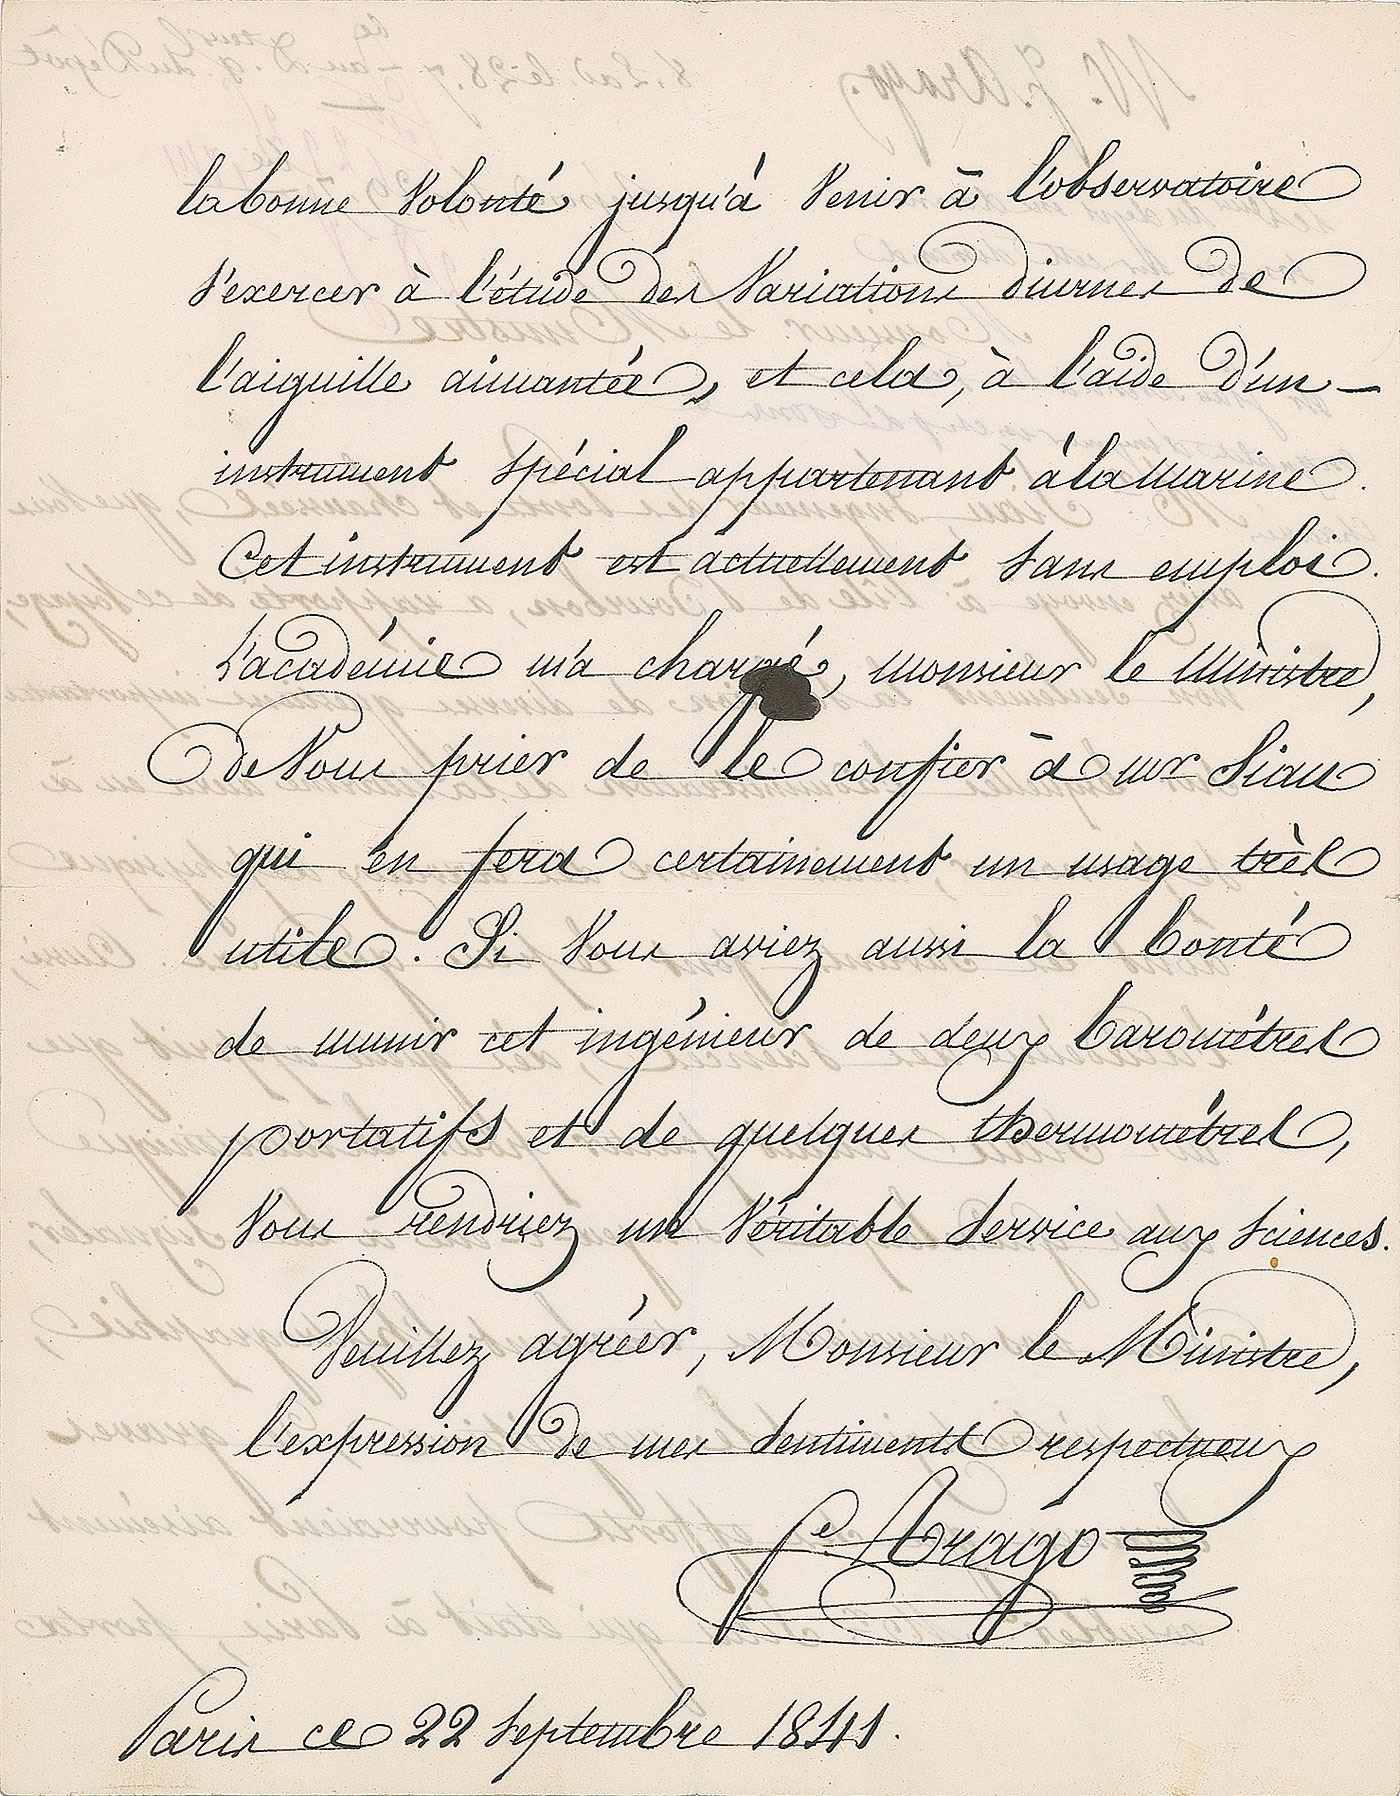 la bonne volonté jusqu'à venir à l'observatoire
s'exercer à l'étude des variations diurnes de
l'aiguille aimantée, et cela, à l'aide d'un
instrument spécial appartenant à la marine.
Cet instrument est actuellement sans emploi.
L'académie m'a chargé, monsieur le Ministre,
de vous prier de le confier à mr Siau
qui en fera certainement un usage très
utile. Si vous aviez aussi la bonté
de munir cet ingénieur de deux baromètres
portatifs et de quelques thermomètres,
vous rendriez un véritable service aux sciences.
Veuillez agréer, Monsieur le Ministre,
l'expression de mes sentiments respectueux
f. Arago
Paris ce 22 septembre 1841.